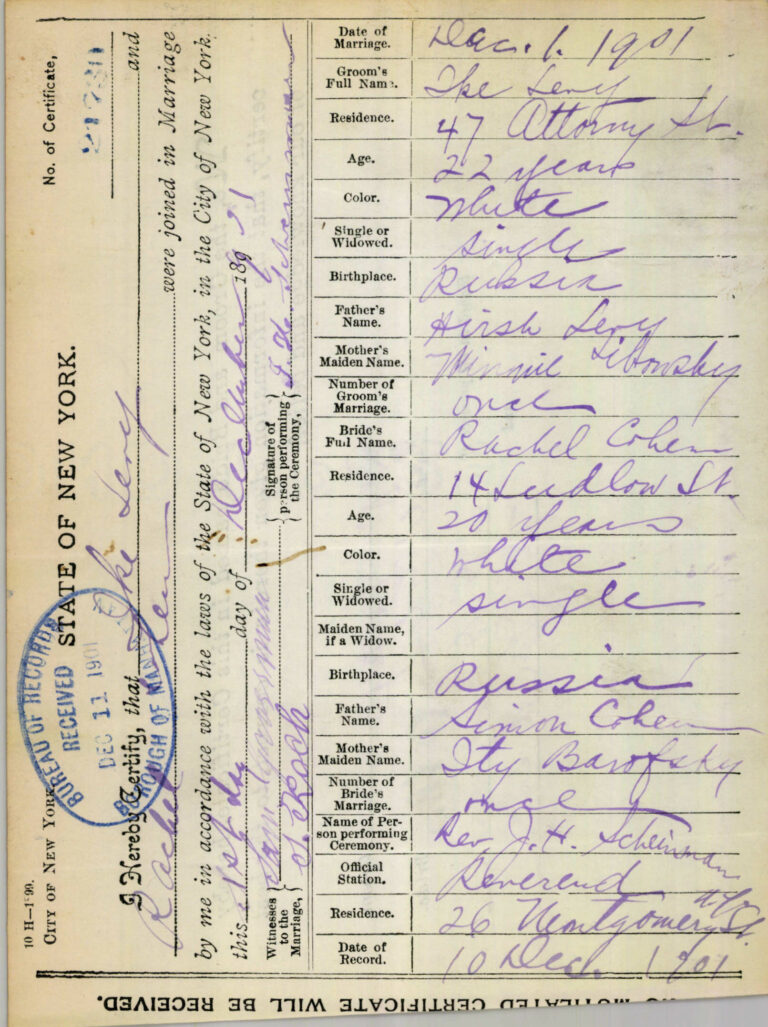 10 H—1899.
CITY OF NEW YORK.
STATE OF NEW YORK.
No. of Certificate,
21730
BUREAU OF RECORDS
RECEIVED
DEC 11 1901
BOROUGH OF MANHATTAN
I Hereby Certify, that Ike Levy and
Rachel Cohen were joined in Marriage
by me in accordance with the laws of the State of New York, in the City of New York.
this 1st day day of December 189 01
Witnesses to the Marriage, Signature of person performing the Ceremony,
Date of Marriage. Dec. 1. 1901
Groom's Full Name. Ike Levy
Residence. 47 Attorny St.
Age. 22 years
Color. White
Single or Widowed. single
Birthplace. Russia
Father's Name. Hirsh Levy
Mother's Maiden Name. Minnie Libowsky
Number of Groom's Marriage. once
Bride's Full Name. Rachel Cohen
Residence. 14 Ludlow St.
Age. 20 years
Color. white
Single or Widowed. single
Maiden Name, if a Widow.
Birthplace. Russia
Father's Name. Simon Cohen
Mother's Maiden Name. Ity Barofsky
Number of Bride's Marriage. once
Name of Person performing Ceremony. Rev. J. H. Scheinman
Official Station. Reverend
Residence. 26 Montgomery St.
Date of Record. 10 Dec. 1901
NO MUTILATED CERTIFICATE WILL BE RECEIVED.